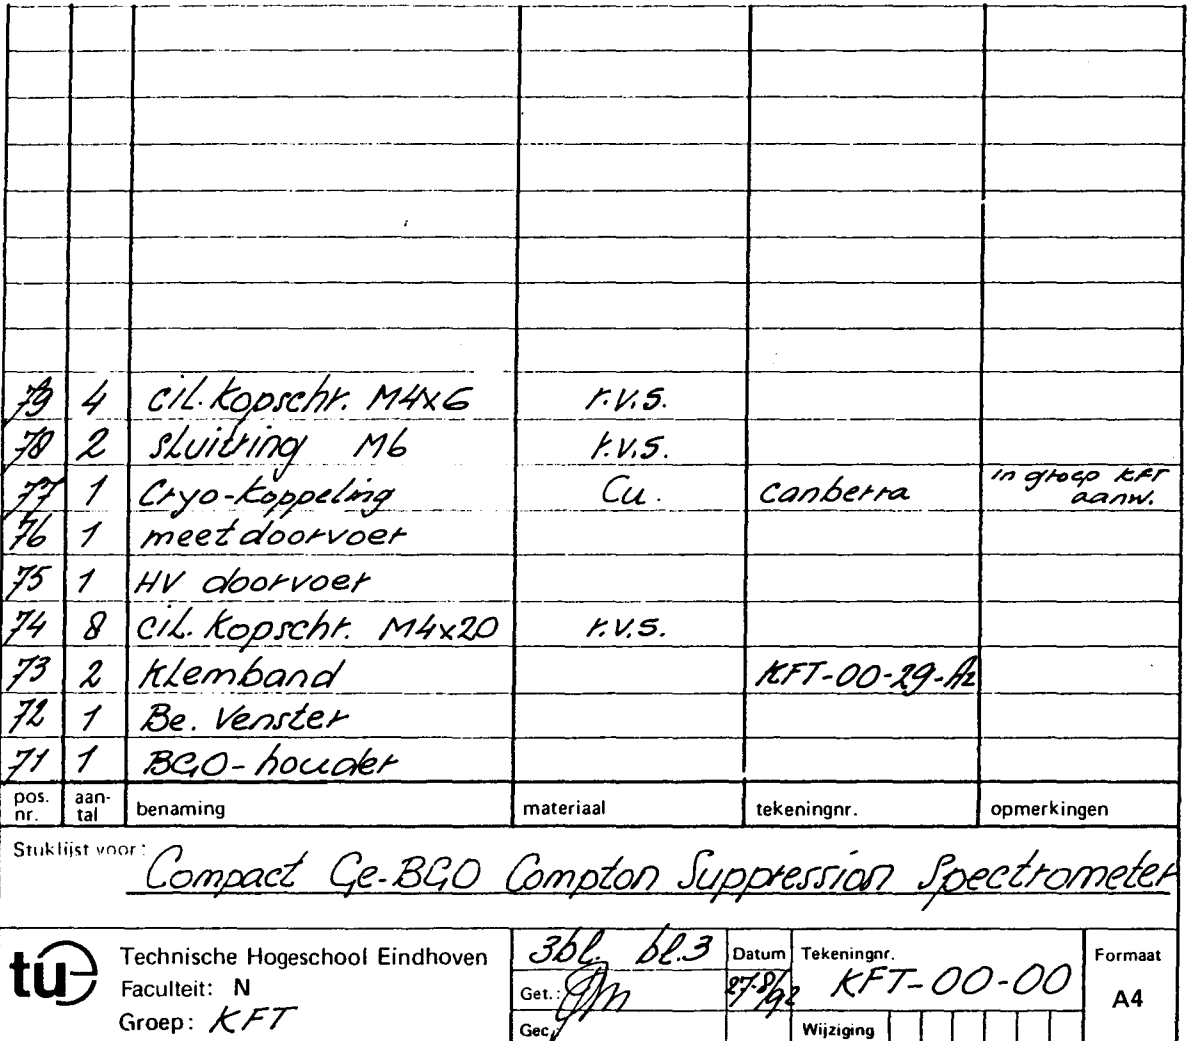 79 4 cil. kopschr. M4x6 r.v.s.
78 2 sluitring M6 r.v.s.
77 1 Cryo-koppeling Cu. Canberra in groep KFT aanw.
76 1 meetdoorvoer
75 1 HV doorvoer
74 8 cil. kopschr. M4x20 r.v.s.
73 2 Klemband KFT-00-29-A2
72 1 Be. Venster
71 1 BGO-houder
pos. nr. aan-tal benaming materiaal tekeningnr. opmerkingen
Stuklijst voor: Compact Ge-BGO Compton Suppression Spectrometer
tue Technische Hogeschool Eindhoven
Faculteit: N
Groep: KFT
3bl. bl.3
Get.:
Gec.
Datum
27-8/92
Tekeningnr.
KFT-00-00
Wijziging
Formaat
A4